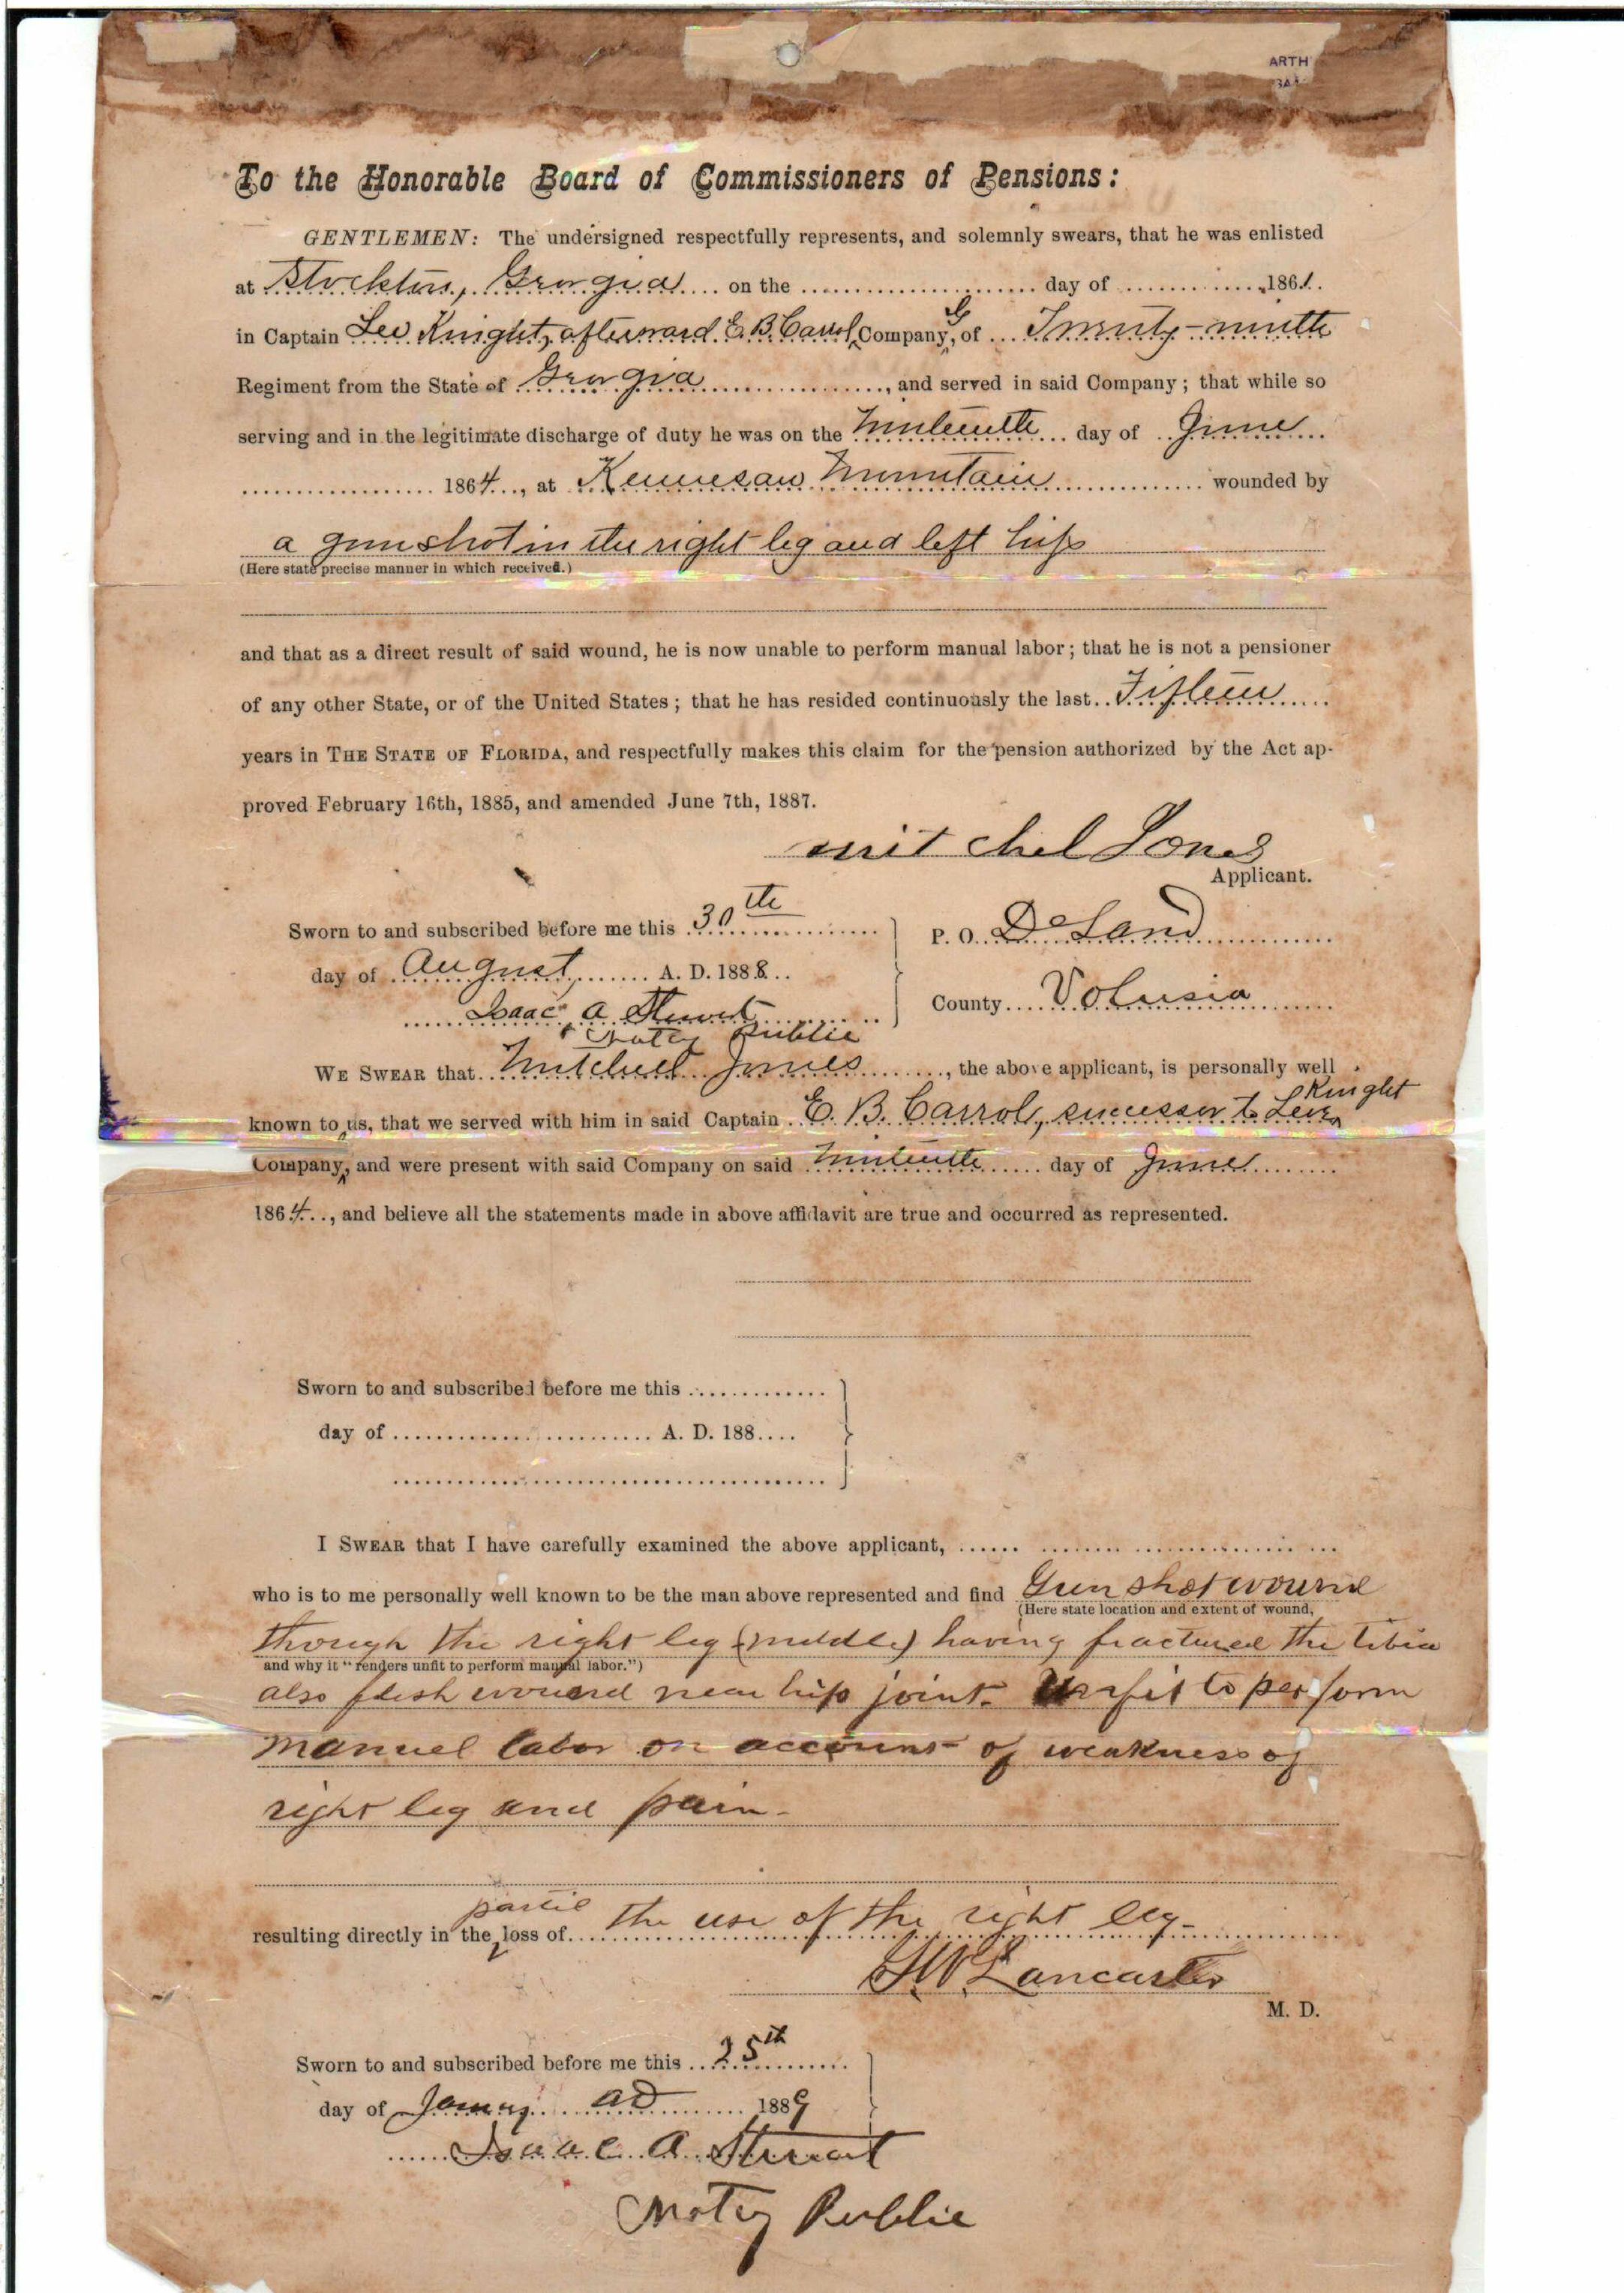 ARTH
To the Honorable Board of Commissioners of Pensions:
GENTLEMEN: The undersigned respectfully represents, and solemnly swears, that he was enlisted
at Stockton, Georgia on the day of 1861.
in Captain Lev Knight, afterward E. B. Carrol Company G, of Twenty-ninth
Regiment from the State of Georgia, and served in said Company; that while so
serving and in the legitimate discharge of duty he was on the Ninteenth day of June
1864, at Kennesaw Mountain wounded by
a gunshot in the right leg and left hip
(Here state precise manner in which received.)
and that as a direct result of said wound, he is now unable to perform manual labor; that he is not a pensioner
of any other State, or of the United States; that he has resided continuously the last Fifteen
years in THE STATE OF FLORIDA, and respectfully makes this claim for the pension authorized by the Act ap-
proved February 16th, 1885, and amended June 7th, 1887.
mitchel Jones
Applicant.
Sworn to and subscribed before me this 30th
day of August, A. D. 1888
Isaac A Stewart
Notary Public
P. O. DeLand
County Volusia
WE SWEAR that Mitchell Jones, the above applicant, is personally well
known to us, that we served with him in said Captain E. B. Carrol, successor to Lev Knight
Company, and were present with said Company on said Ninteenth day of June
1864, and believe all the statements made in above affidavit are true and occurred as represented.
Sworn to and subscribed before me this
day of A. D. 188
I SWEAR that I have carefully examined the above applicant,
who is to me personally well known to be the man above represented and find Gun shot wound
(Here state location and extent of wound,
through the right leg (middle) having fractured the tibia
and why it "renders unfit to perform manual labor.")
also flesh wound near hip joint. Unfit to perform
manuel labor on account of weakness of
right leg and pain.
resulting directly in the partie loss of the use of the right leg.
G.W. Lancaster
M. D.
Sworn to and subscribed before me this 25th
day of January AD 1889
Isaac A. Stewart
Notary Public